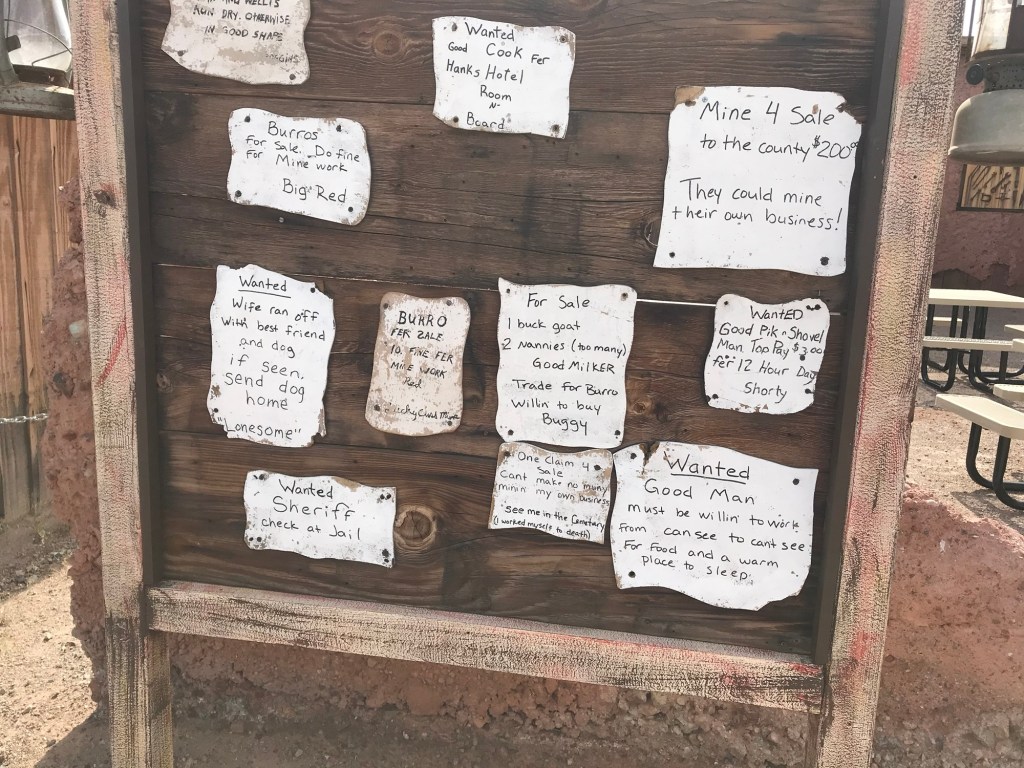 RUN DRY. OTHERWISE
IN GOOD SHAPE
Wanted
Good Cook Fer
Hanks Hotel
Room
N-
Board
Burros
For Sale. Do fine
for Mine work
Big Red
Mine 4 Sale
to the county $200.00
They could mine
their own business!
Wanted
Wife ran off
with best friend
and dog
if seen,
send dog
home
"Lonesome"
BURRO
FER SALE
TO. FINE FER
MINE WORK
Red
Lucky Cuss Mine
For Sale
1 buck goat
2 Nannies (too many)
Good MILKER
Trade For Burro
Willin' to buy
Buggy
WantED
Good Pik n Shovel
Man Top Pay $3.00
fer 12 Hour Day
Shorty
Wanted
Sheriff
check at Jail
One Claim 4
Sale
Cant make no money
minin' my own business
see me in the Cemetary
(I worked myself to death)
Wanted
Good Man
must be willin' to work
From can see to cant see
For food and a warm
place to sleep.